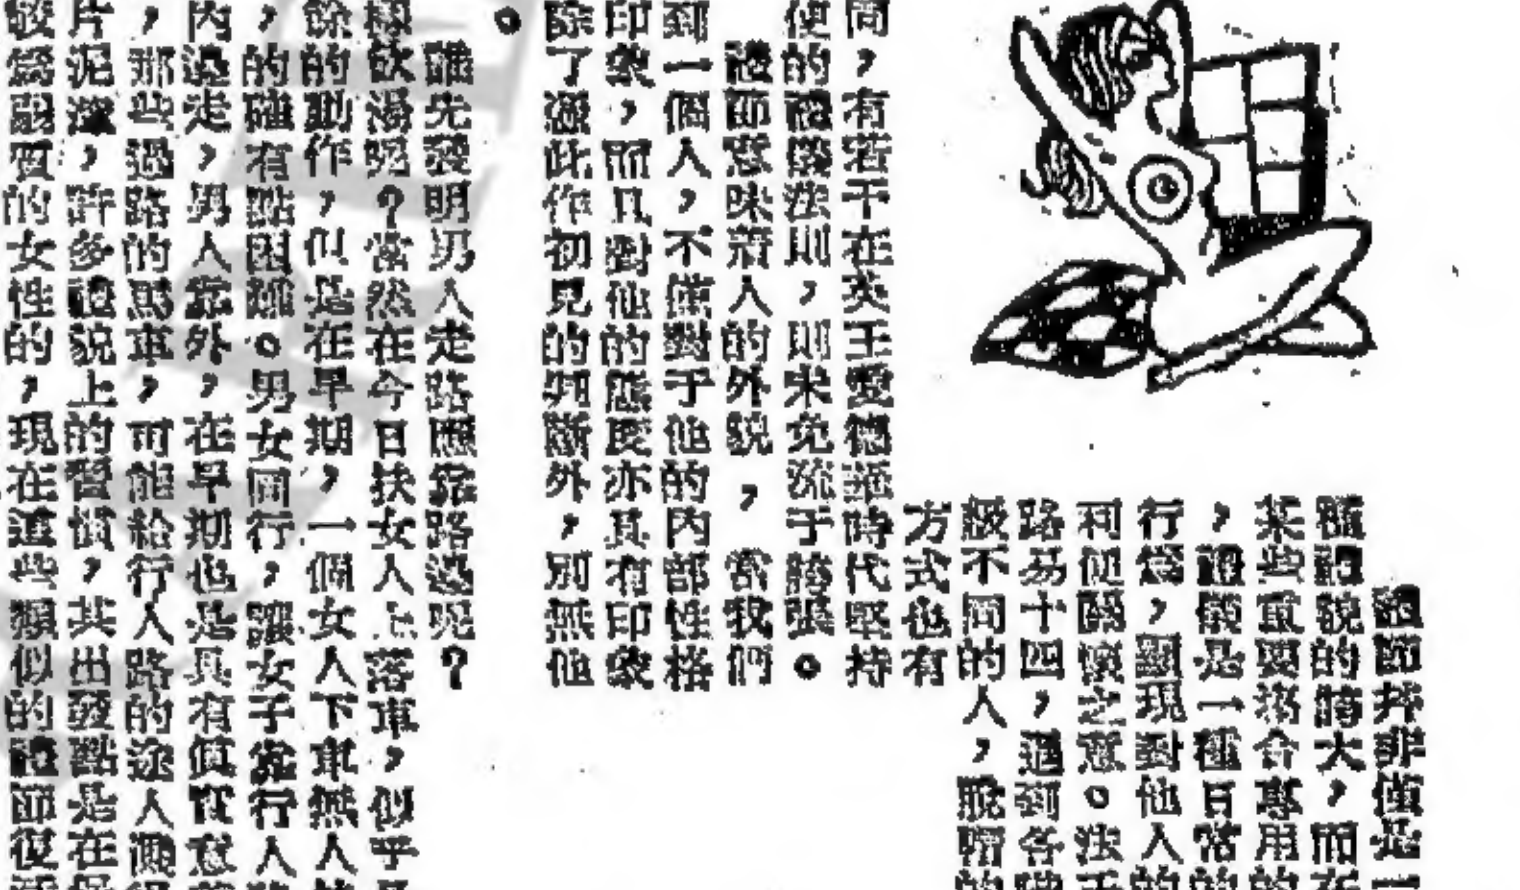 禮節幷非僅是一
種禮貌的特大，而在
某些重要洛合專用的
，禮儀是一種日常的
行爲，顯現對他人的
何便關懷之意。法王
路易十四，遇到各
級不同的人，脫帽的
方式也有
同，有若干在英王愛德華時代堅持
使的禮儀法則，則未免流于誇張。
禮節意味着人的外貌，當我們
到一個人，不僅對于他的內部性格
印象，而且對他的態度亦具有印象
除了憑此作初見的判斷外，別無他
。
誰先發明男人走路應靠路邊呢？
樣飲湯呢？當然在今日扶女人上落車，似乎
餘的動作，但是在早期，一個女人下車無人
，的確有點困難。男女同行，讓女子靠行人
內邊走，男人靠外，在早期也是具有眞實意
，那些過路的馬車，可能給行人路的途人濺
片泥濘，許多禮貌上的習慣，其出發點是在
敬爲弱質的女性的，現在這些類似的禮節復